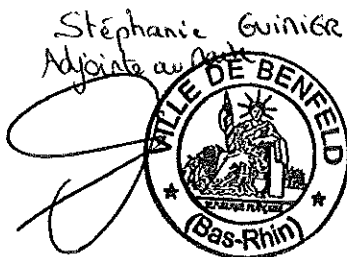 Stéphanie GUINIER
Adjointe au Maire
VILLE DE BENFELD
(Bas-Rhin)